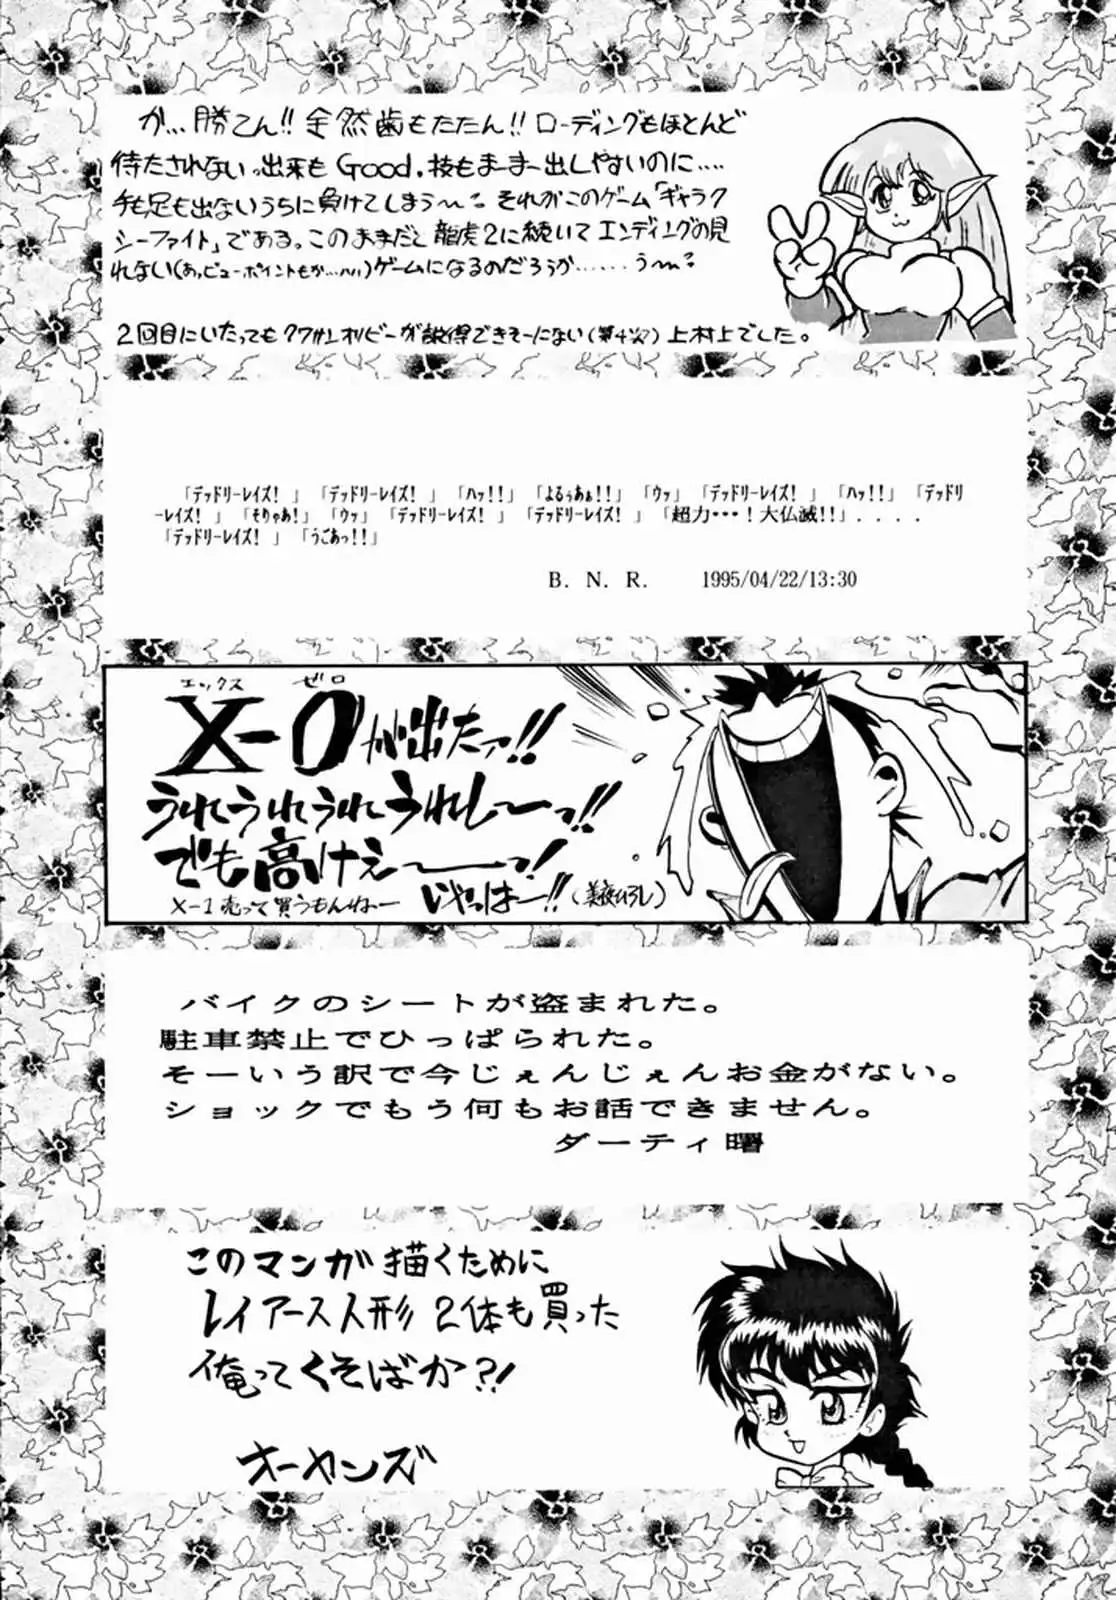 が…勝てん!!全然歯もたたん!!ローディングもほとんど
待たされないっ出来もGood.技もまーまー出しやすいのに……
手も足も出ないうちに負けてしまう〜? それがこのゲーム「ギャラク
シーファイト」である。このままだと龍虎2に続いてエンディングの見
れない(あッビューポイントもか…ハハ)ゲームになるのだろうか……う〜?
2回目にいたってもクワサンオリビーが説得できそーにない(第4次) 上村上でした。
「デッドリーレイズ! 」 「デッドリーレイズ! 」 「ハッ!!」 「よるぅあぁ!!」 「ウッ」 「デッドリーレイズ! 」 「ハッ!!」 「デッドリ
ーレイズ! 」 「そりゃあ!」 「ウッ」 「デッドリーレイズ! 」 「デッドリーレイズ! 」 「超力・・・!大仏滅!!」....
「デッドリーレイズ! 」 「うごあっ!!」
B. N. R. 1995/04/22/13:30
エックス ゼロ
X-0が出たァ!!
うれうれうれうれし〜っ!!
でも高けえ〜っ!
X-1売って買うもんねー いやっはー!!(美夜ひろし)
バイクのシートが盗まれた。
駐車禁止でひっぱられた。
そーいう訳で今じぇんじぇんお金がない。
ショックでもう何もお話できません。
ダーティ曙
このマンガ描くために
レイアース人形2体も買った
俺ってくそばか?!
オーヤンズ